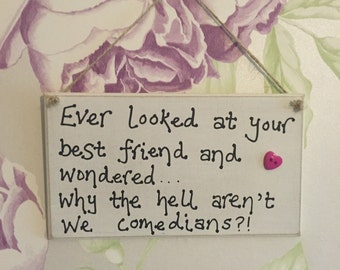 Ever looked at your
best friend and
wondered...
Why the hell aren't
we comedians?!